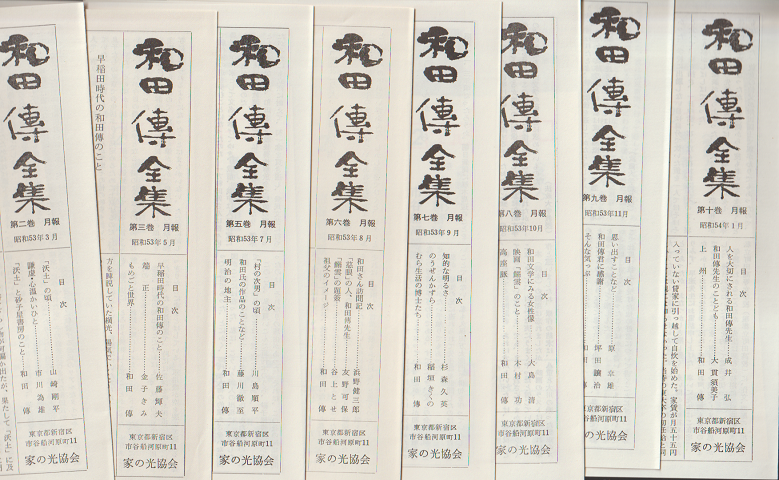 和田傳全集
第十巻 月報
昭和54年1月
目次
人を大切にされる和田傳先生……成井弘
和田傳先生のことども……大貫須美子
上州……和田傳
東京都新宿区
市谷船河原町11
家の光協会
入っていない貸家に引っ越して自炊を始めた。家賃が月五十五円
和田傳全集
第九巻 月報
昭和53年11月
目次
思い出すことなど……原幸雄
和田傳君に感謝……坪田譲治
そんな気っぷ……和田傳
東京都新宿区
市谷船河原町11
家の光協会
和田傳全集
第八巻 月報
昭和53年10月
目次
和田文学にみる女性像……大島清
映画「鰯雲」のこと……木村功
高座豚……和田傳
東京都新宿区
市谷船河原町11
家の光協会
和田傳全集
第七巻 月報
昭和53年9月
目次
知的な明るさ……杉森久英
のうぜんかずら……稲垣きくの
むら生活の博士たち……和田傳
東京都新宿区
市谷船河原町11
家の光協会
和田傳全集
第六巻 月報
昭和53年8月
目次
和田さん訪問記……浜野健三郎
祖父のイメージ……和田傳
東京都新宿区
市谷船河原町11
家の光協会
和田傳全集
第五巻 月報
昭和53年7月
目次
「村の次男」の頃……川島順平
和田氏の作品のことなど……藤川徹至
明治の地主……和田傳
東京都新宿区
市谷船河原町11
家の光協会
和田傳全集
第三巻 月報
昭和53年5月
目次
早稲田時代の和田傳のこと……佐藤輝夫
端正……金子きみ
もめごと世界……和田傳
東京都新宿区
市谷船河原町11
家の光協会
早稲田時代の和田傳のこと
和田傳全集
第二巻 月報
昭和53年3月
目次
「沃土」の頃……山崎剛平
謙虚・心温かいひと……市川為雄
「沃土」と砂子屋書房のこと……和田傳
東京都新宿区
市谷船河原町11
家の光協会